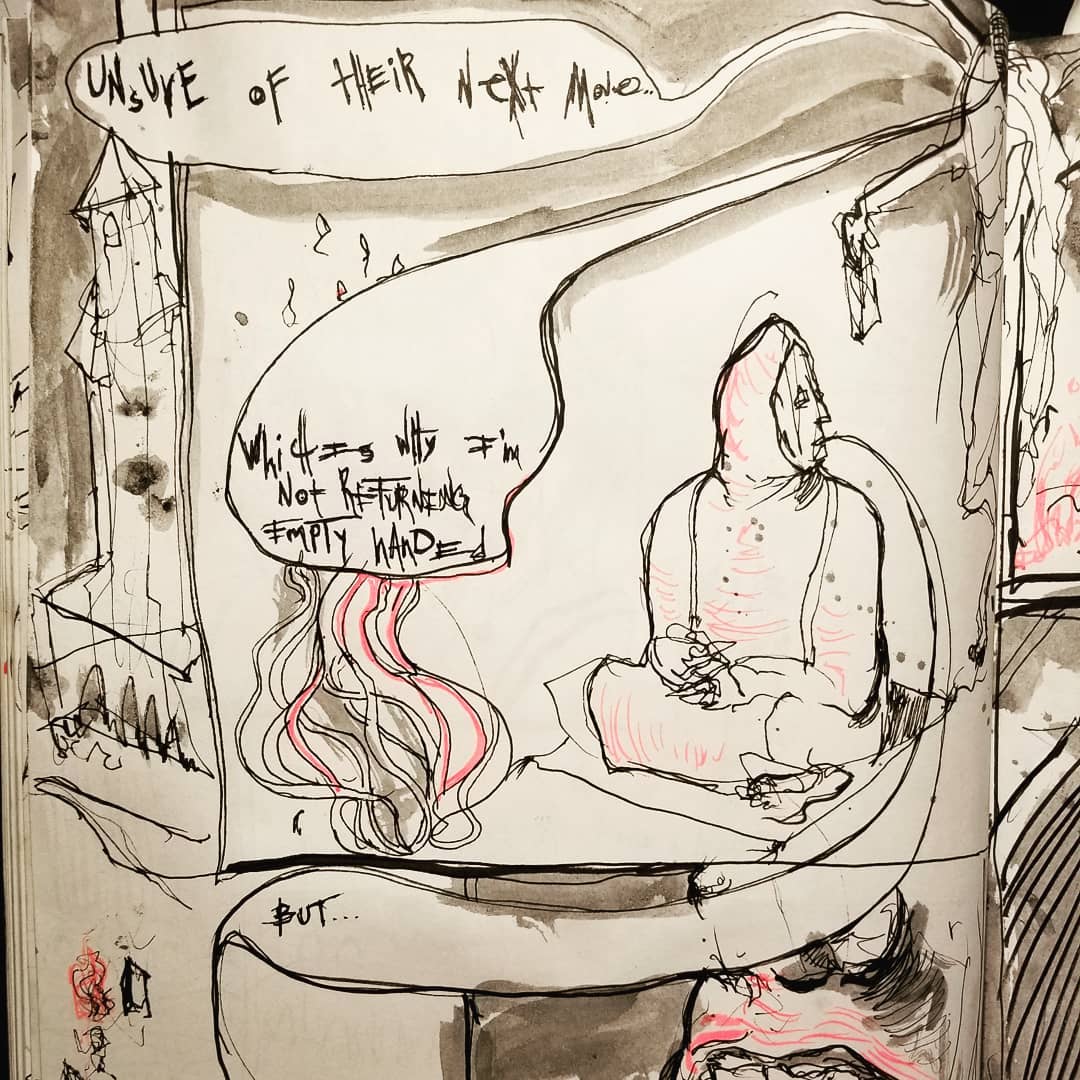 UNSURE OF THEIR NEXT MOVE..
WHICH IS WHY I'm
NOT RETURNING
EMPTY HANDED
BUT...